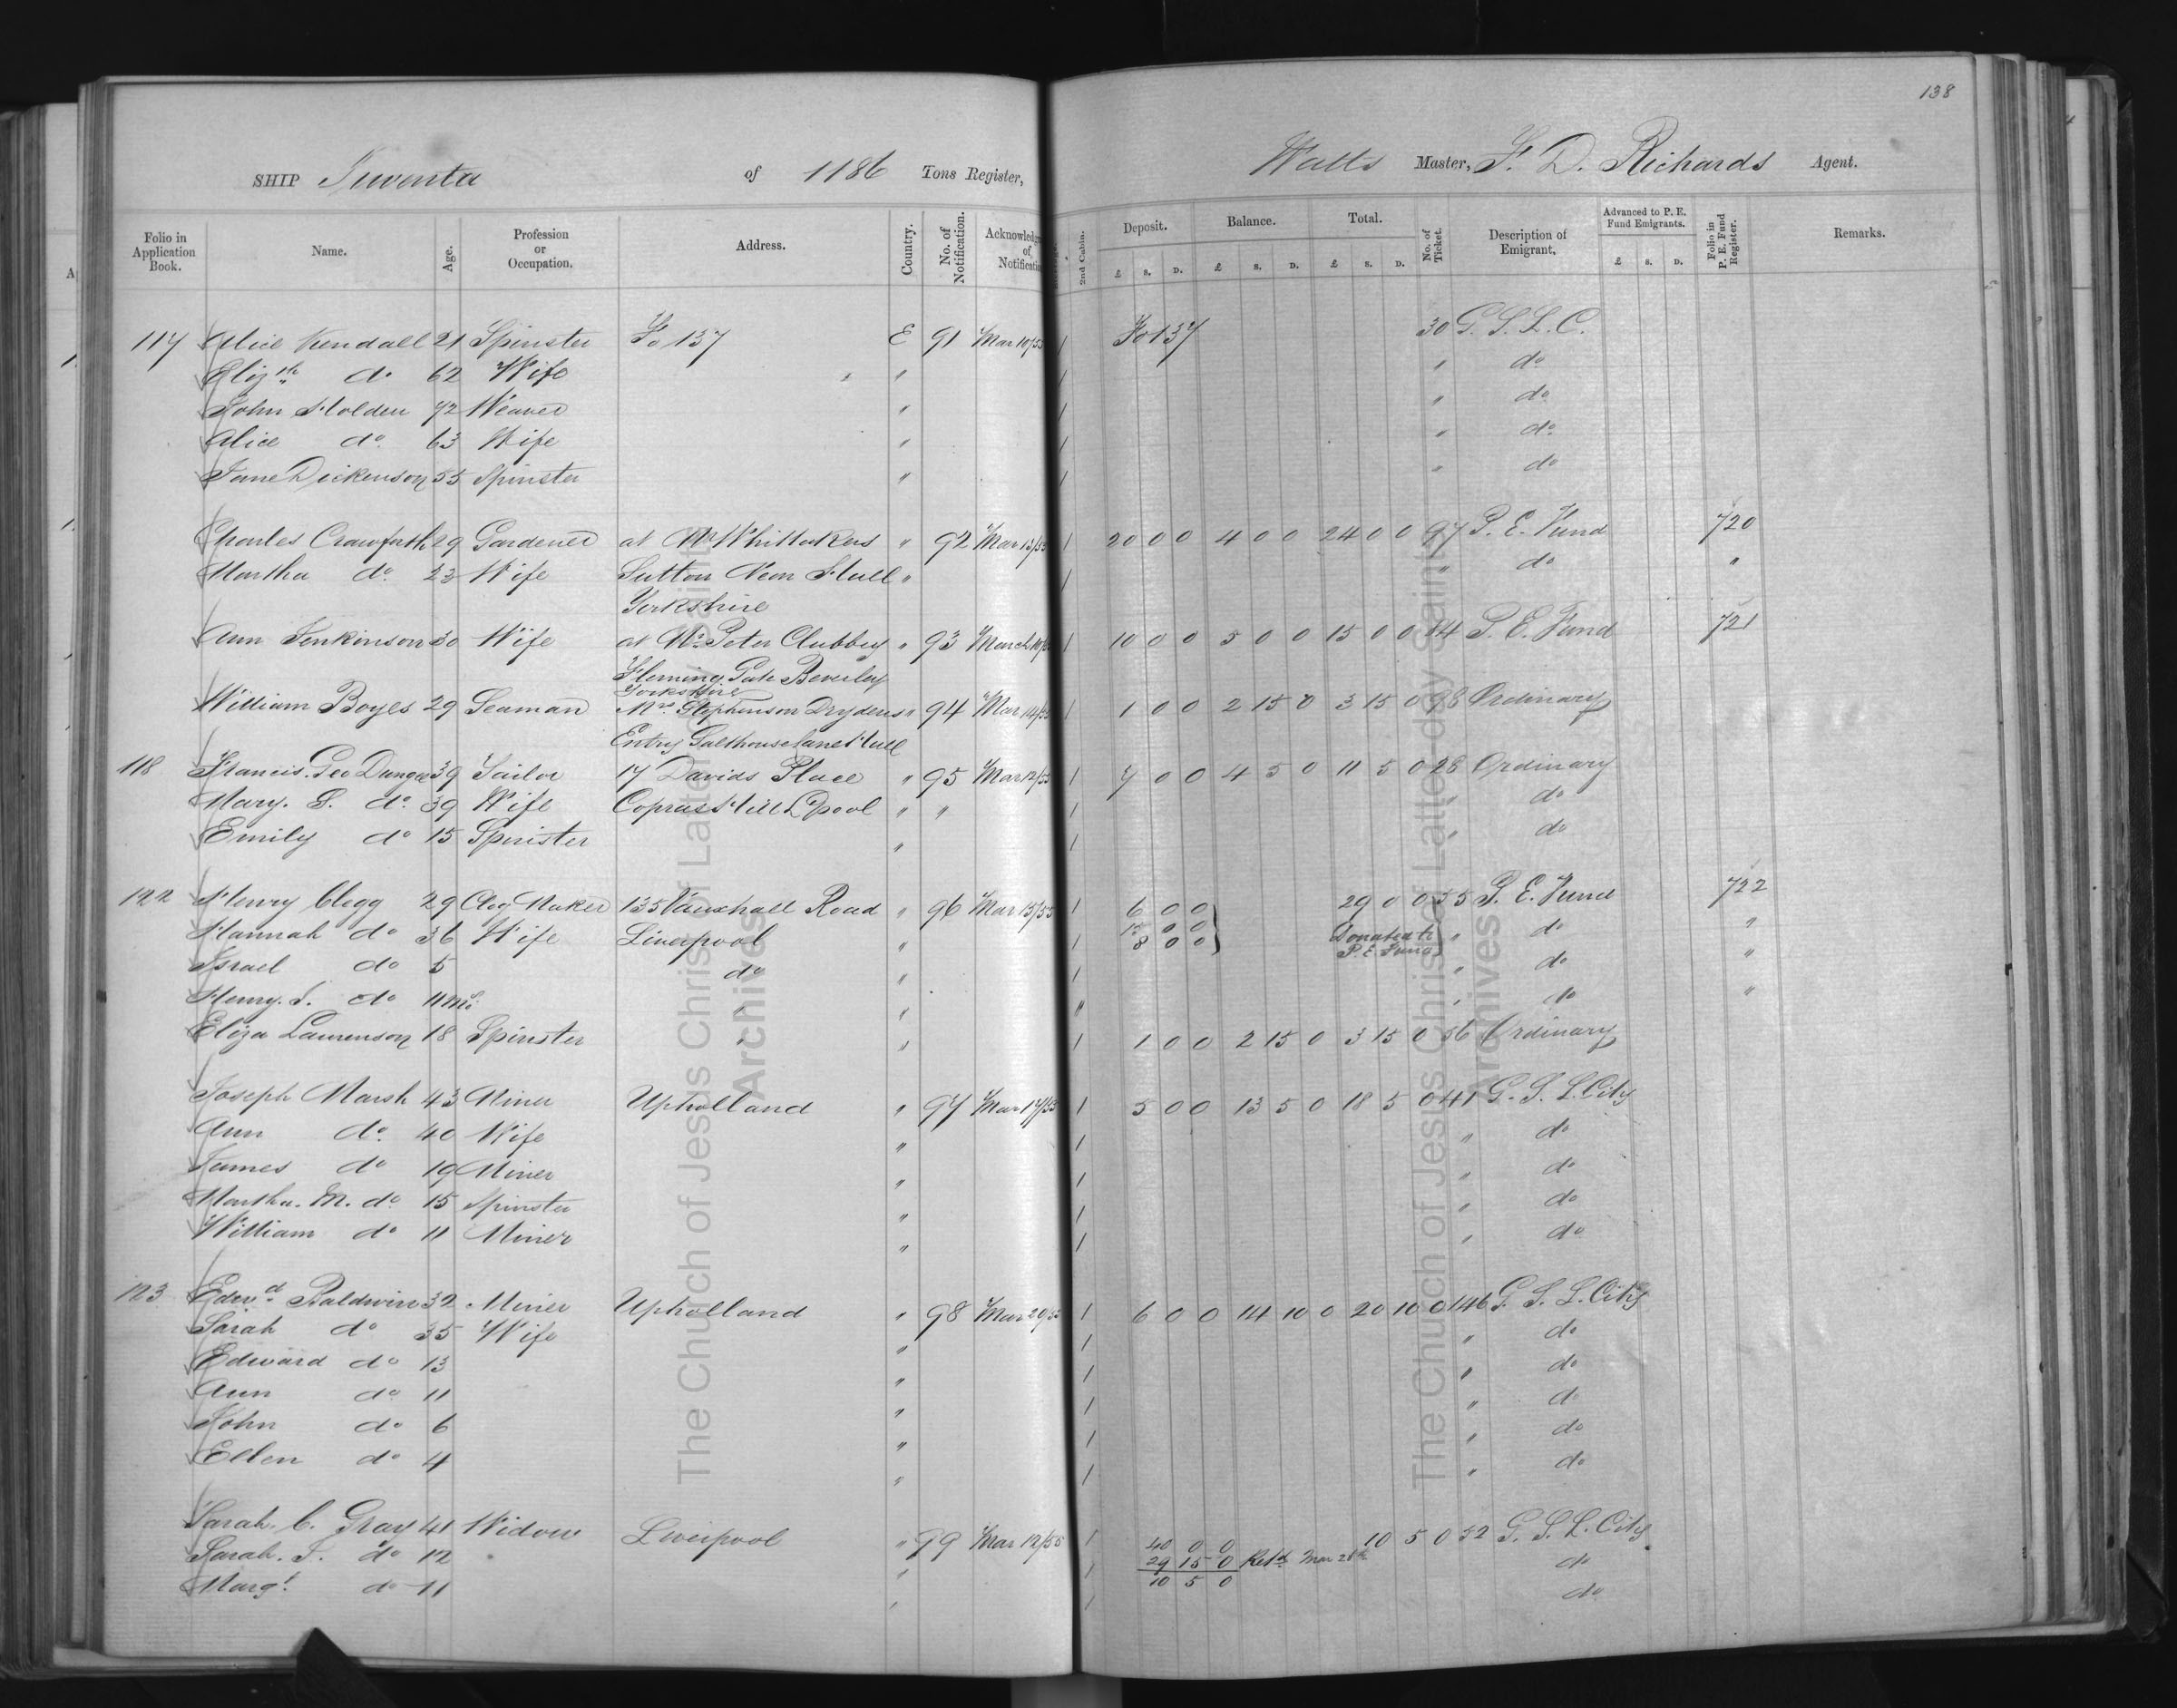 138
SHIP Juventa of 1186 Tons Register, Watts Master, F. D. Richards Agent.
Folio in Application Book. Name. Age. Profession or Occupation. Address. Country. No. of Notification. Acknowledg of Notificatio 2nd Cabin. Deposit. £ S. D. Balance. £ S. D. Total. £ S. D. No. of Ticket. Description of Emigrant. Advanced to P. E. Fund Emigrants. £ S. D. Folio in P. E. Fund Register. Remarks.
117 Alice Kendall 21 Spinster Fo 137 E 91 Mar 10/55 1 Fo 137 30 G. S. L. C.
Elizth do 62 Wife " 1 " do
John Holden 72 Weaver " 1 " do
Alice do 63 Wife " 1 " do
Jane Dickenson 55 Spinster " 1 " do
Charles Crawforth 29 Gardener at Mr Whittakers " 92 Mar 13/55 1 20 0 0 4 0 0 24 0 0 97 P. E. Fund 720
Martha do 23 Wife Sutton Near Hull " 1 " do "
Yorkshire
Ann Jenkinson 30 Wife at Mr Peter Clubbey " 93 March 10/55 1 10 0 0 5 0 0 15 0 0 14 P. E. Fund 721
Fleming Gate Beverley
Yorkshire
William Boyes 29 Seaman Mrs Stephenson Drydens " 94 Mar 14/55 1 1 0 0 2 15 0 3 15 0 98 Ordinary
Entry Salthouse lane Hull
118 Francis. Geo Dunga 39 Sailor 17 Davids Place " 95 Mar 12/55 1 7 0 0 4 5 0 11 5 0 28 Ordinary
Mary. S. do 39 Wife Copras Hill L'pool " " 1 " do
Emily do 15 Spinster " 1 " do
122 Henry Clegg 29 Clog Maker 135 Vauxhall Road " 96 Mar 15/55 1 6 0 0 29 0 0 55 P. E. Fund 722
Hannah do 36 Wife Liverpool " 1 15 0 0 Donated to " do "
8 0 0 P. E. Fund
Israel do 5 do " 1 " do "
Henry. J. do 11 ms " " " " do "
Eliza Laurenson 18 Spinster " " 1 1 0 0 2 15 0 3 15 0 56 Ordinary
Joseph Marsh 43 Miner Upholland " 97 Mar 17/55 1 5 0 0 13 5 0 18 5 0 41 G. S. L. City
Ann do 40 Wife " 1 " do
James do 19 Miner " 1 " do
Martha. M. do 15 Spinster " 1 " do
William do 11 Miner " 1 " do
123 Edwd Baldwin 32 Miner Upholland " 98 Mar 20/55 1 6 0 0 14 10 0 20 10 0 146 G. S. L. City
Sarah do 35 Wife " 1 " do
Edward do 13 " 1 " do
Ann do 11 " 1 " do
John do 6 " 1 " do
Ellen do 4 " 1 " do
Sarah. C. Gray 41 Widow Liverpool " 99 Mar 12/55 1 40 0 0 10 5 0 52 G. S. L. City
Sarah. J. do 12 " 1 29 15 0 Retd Mar 28th do
Margt do 11 " 1 10 5 0 do
The Church of Jesus Christ of Latter-day Saints
Archives
The Church of Jesus Christ of Latter-day Saints
Archives